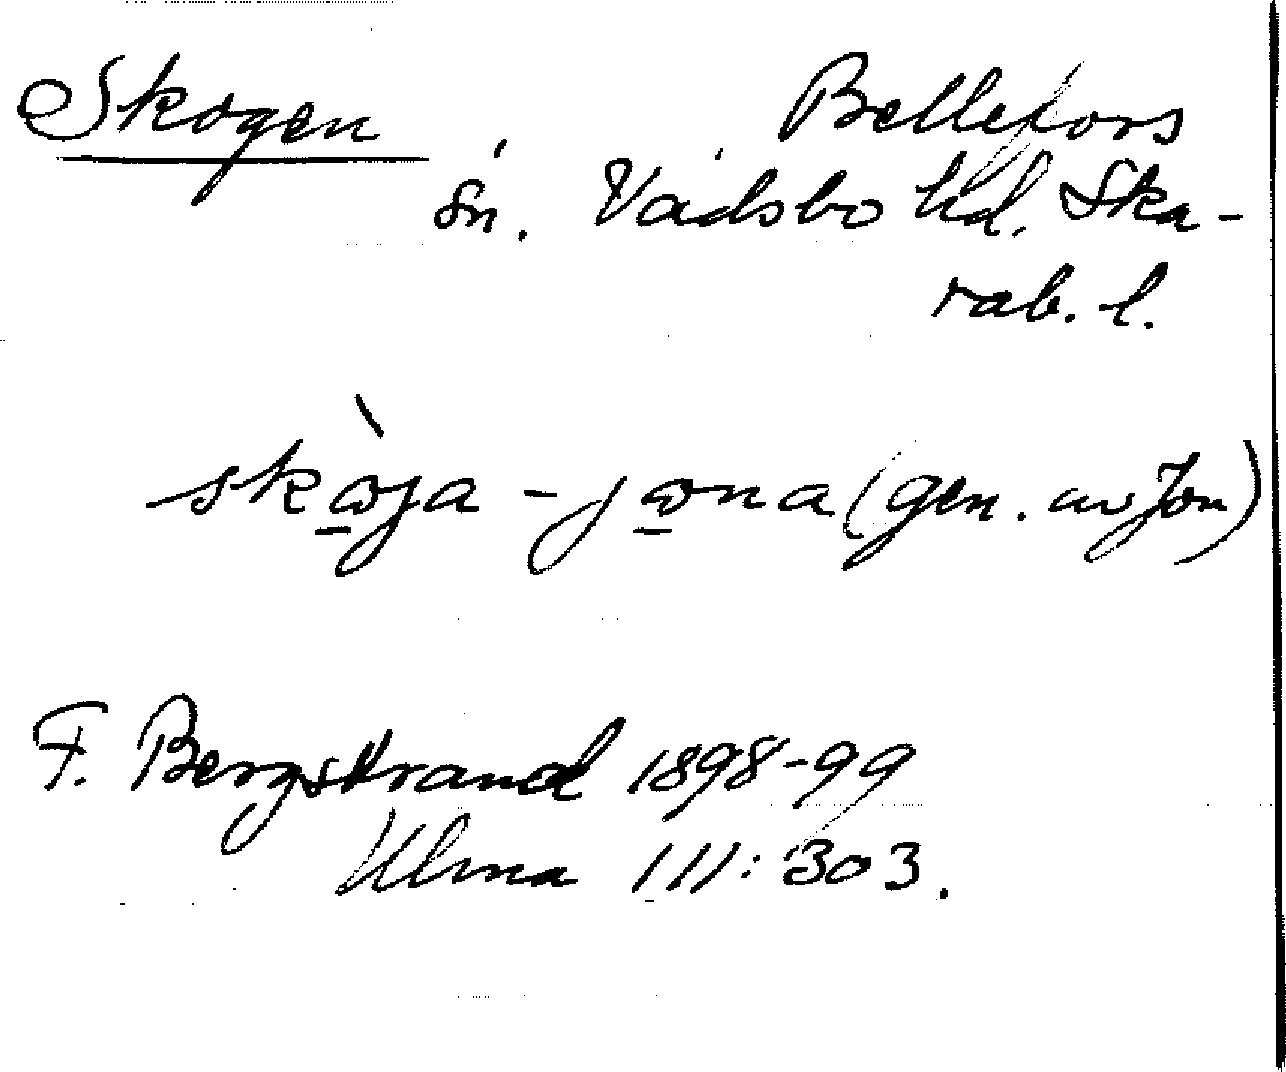 Skogen Bellefors
sn. Vadsbo hd. Ska-
rab. l.
skàja - jona (gen. av Jon)
F. Bergstrand 1898-99
Ulma 111:303.